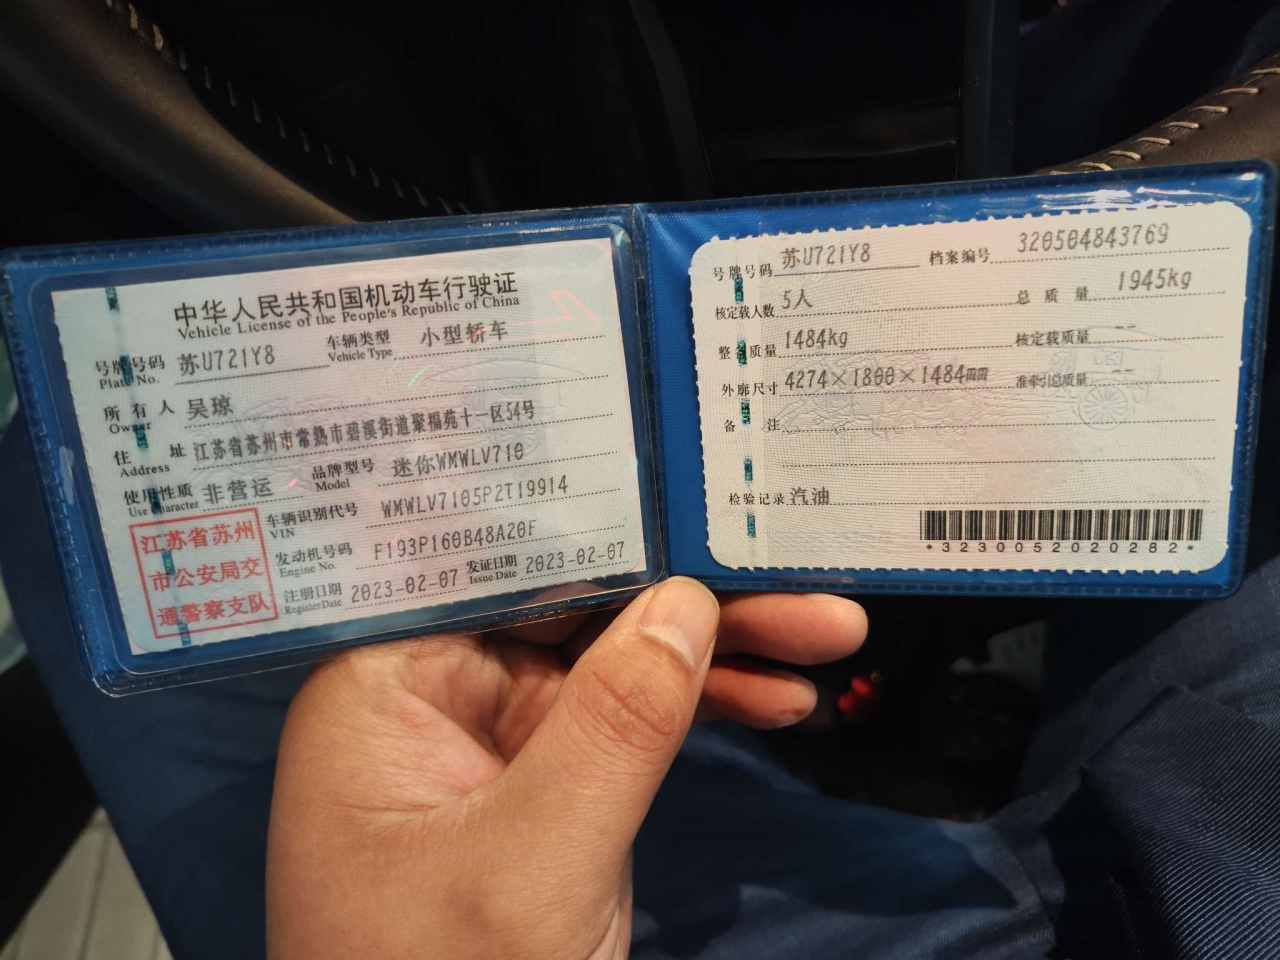 中华人民共和国机动车行驶证
Vehicle License of the People's Republic of China
号牌号码 苏U721Y8 车辆类型 小型轿车
Plate No. Vehicle Type
所有人 吴琼
Owner
住址 江苏省苏州市常熟市碧溪街道聚福苑十一区54号
Address
使用性质 非营运 品牌型号 迷你WMWLV710
Use Character Model
车辆识别代号 WMWLV7105P2T19914
VIN
发动机号码 F193P160B48A20F
Engine No.
注册日期 2023-02-07 发证日期 2023-02-07
Register Date Issue Date
江苏省苏州
市公安局交
通警察支队
号牌号码 苏U721Y8 档案编号 320504843769
核定载人数 5人 总质量 1945kg
整备质量 1484kg 核定载质量 --
外廓尺寸 4274×1800×1484mm 准牵引总质量 --
备注
检验记录 汽油
*3230052020282*